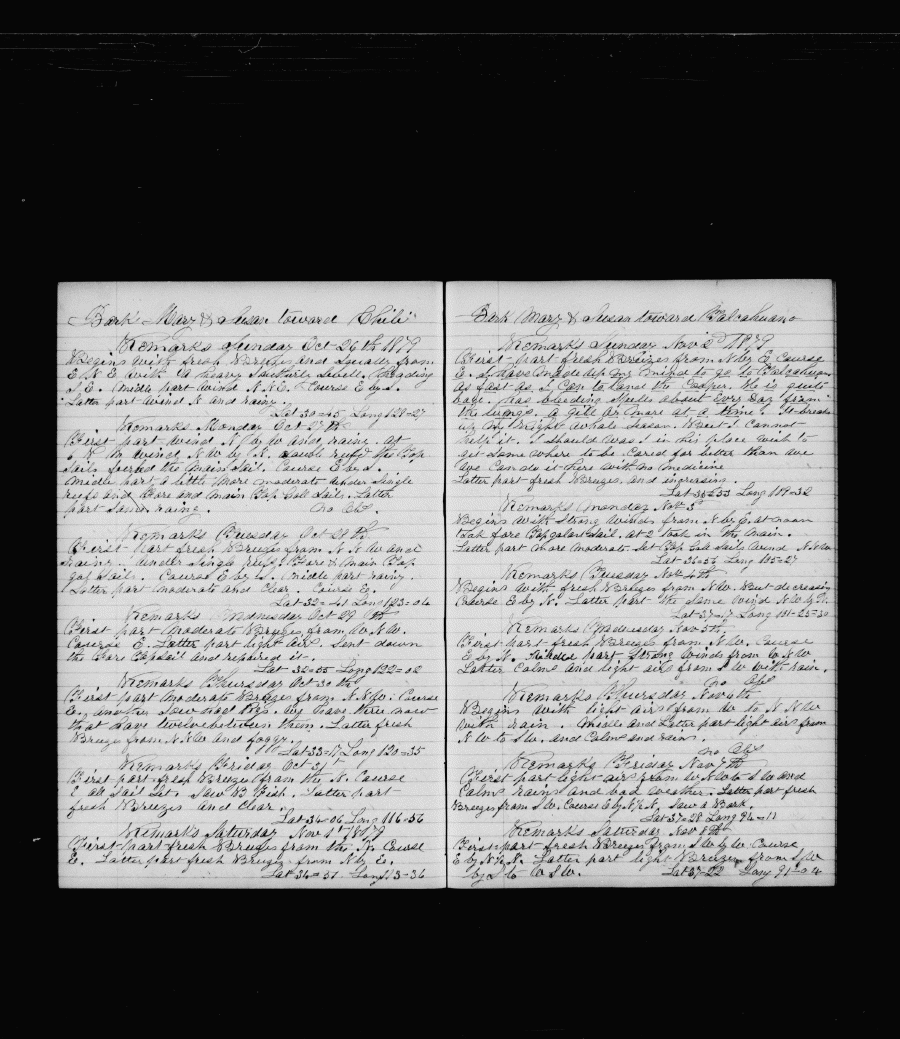 Bark Mary & Susan toward Chili
Remarks Sunday Oct 26th 1879
Begins with fresh Breezes and Squalls from
E N E with a heavy Southerly Swell. Heading
S E. Middle part wind N N E. Course E by S.
Latter part wind N and rainy.
Lat 30=45 Long 128=27
Remarks Monday Oct 27th
First part wind N by W and rainy. at
6 P M wind N W by N. double reefd the Top
Sails furled the Main Sail. Course E by S.
Middle part a little more moderate under Single
reefs and Fore and Main Top Gall Sails. Latter
part Same raining. no Obs.
Remarks Tuesday Oct 28th
First part fresh Breezes from N N W and
rainy. under Single reefs Fore & Main Top
gal Sails. Course E by S. Middle part rainy.
Latter part moderate and Clear. Course E.
Lat 32=41 Long 123=04
Remarks Wednesday Oct 29th
First part Moderate Breezes from W N W.
Course E. Latter part light airs. Sent down
the Fore Topsail and repaired it.
Lat 32=55 Long 122=02
Remarks Thursday Oct 30th
First part Moderate Breezes from N N W. Course
E. another Sow had Pigs. we have three now
that have twelve between them. Latter fresh
Breeze from N N W and foggy.
Lat 33=17 Long 120=35
Remarks Friday Oct 31st
First part fresh Breezes from the N. Course
E all Sail Set. Saw B Fish. Latter part
fresh Breezes and Clear.
Lat 34=06 Long 116=56
Remarks Saturday Nov 1st 1879
First part fresh Breezes from the N. Course
E. Latter part fresh Breezes from N by E.
Lat 34=57 Long 113=36
Bark Mary & Susan toward Talcahuano
Remarks Sunday Nov 2d 1879
First part fresh Breezes from N by E Course
E. I have made up my mind to go to Talcahuano
as fast as I Can to land the Cooper. He is quite
bad. has bleeding Spells about Every Day from
the lungs. a gill or more at a time. It breaks
up my right whale Season. But I Cannot
help it. I should was I in his place wish to
get Some where to be Cared for better than we
we Can do it here with no Medicine
Latter part fresh Breezes and increasing.
Lat 36=33 Long 109=32
Remarks Monday Nov 3d
Begins with Strong winds from N by E. at noon
took fore Topgalant Sail. at 2 took in the Main.
Latter part More moderate. Set Top Gall Sails wind N N W
Lat 36=56 Long 105=27
Remarks Tuesday Nov 4th
Begins with fresh Breezes from N W. But decreasing
Course E by N. Latter part the Same wind N W by N.
Lat 37=17 Long 101=25=30
Remarks Wednesday Nov 5th
First part fresh Breezes from N W. Course
E by N. Middle part Strong winds from W N W
Latter Calms and light airs from S W with rain.
no Obs
Remarks Thursday Nov 6th
Begins with light airs from W to N N W
with rain. Middle and Latter part light airs from
N W to S W. and Calms and rain.
no Obs
Remarks Friday Nov 7th
First part light airs from W N W to S W and
Calms rains and bad weather. Latter part fresh
Breezes from S W. Course E by N ½ N. Saw a Bark.
Lat 37=28 Long 94=11
Remarks Saturday Nov 8th
First part fresh Breezes from S W by W. Course
E by N ½ N. Latter part light Breezes from S W
by S to W S W. Lat 37=22 Long 91=04